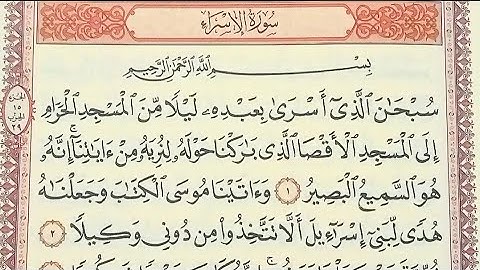 سُورَةُ الإِسْرَاءِ
بِسْمِ ٱللَّهِ ٱلرَّحْمَٰنِ ٱلرَّحِيمِ
الجزء
١٥
الحزب
٢٩
سُبْحَٰنَ ٱلَّذِىٓ أَسْرَىٰ بِعَبْدِهِۦ لَيْلًا مِّنَ ٱلْمَسْجِدِ ٱلْحَرَامِ
إِلَى ٱلْمَسْجِدِ ٱلْأَقْصَا ٱلَّذِى بَٰرَكْنَا حَوْلَهُۥ لِنُرِيَهُۥ مِنْ ءَايَٰتِنَآ ۚ إِنَّهُۥ
هُوَ ٱلسَّمِيعُ ٱلْبَصِيرُ ١ وَءَاتَيْنَا مُوسَى ٱلْكِتَٰبَ وَجَعَلْنَٰهُ
هُدًى لِّبَنِىٓ إِسْرَٰٓءِيلَ أَلَّا تَتَّخِذُوا۟ مِن دُونِى وَكِيلًا ٢